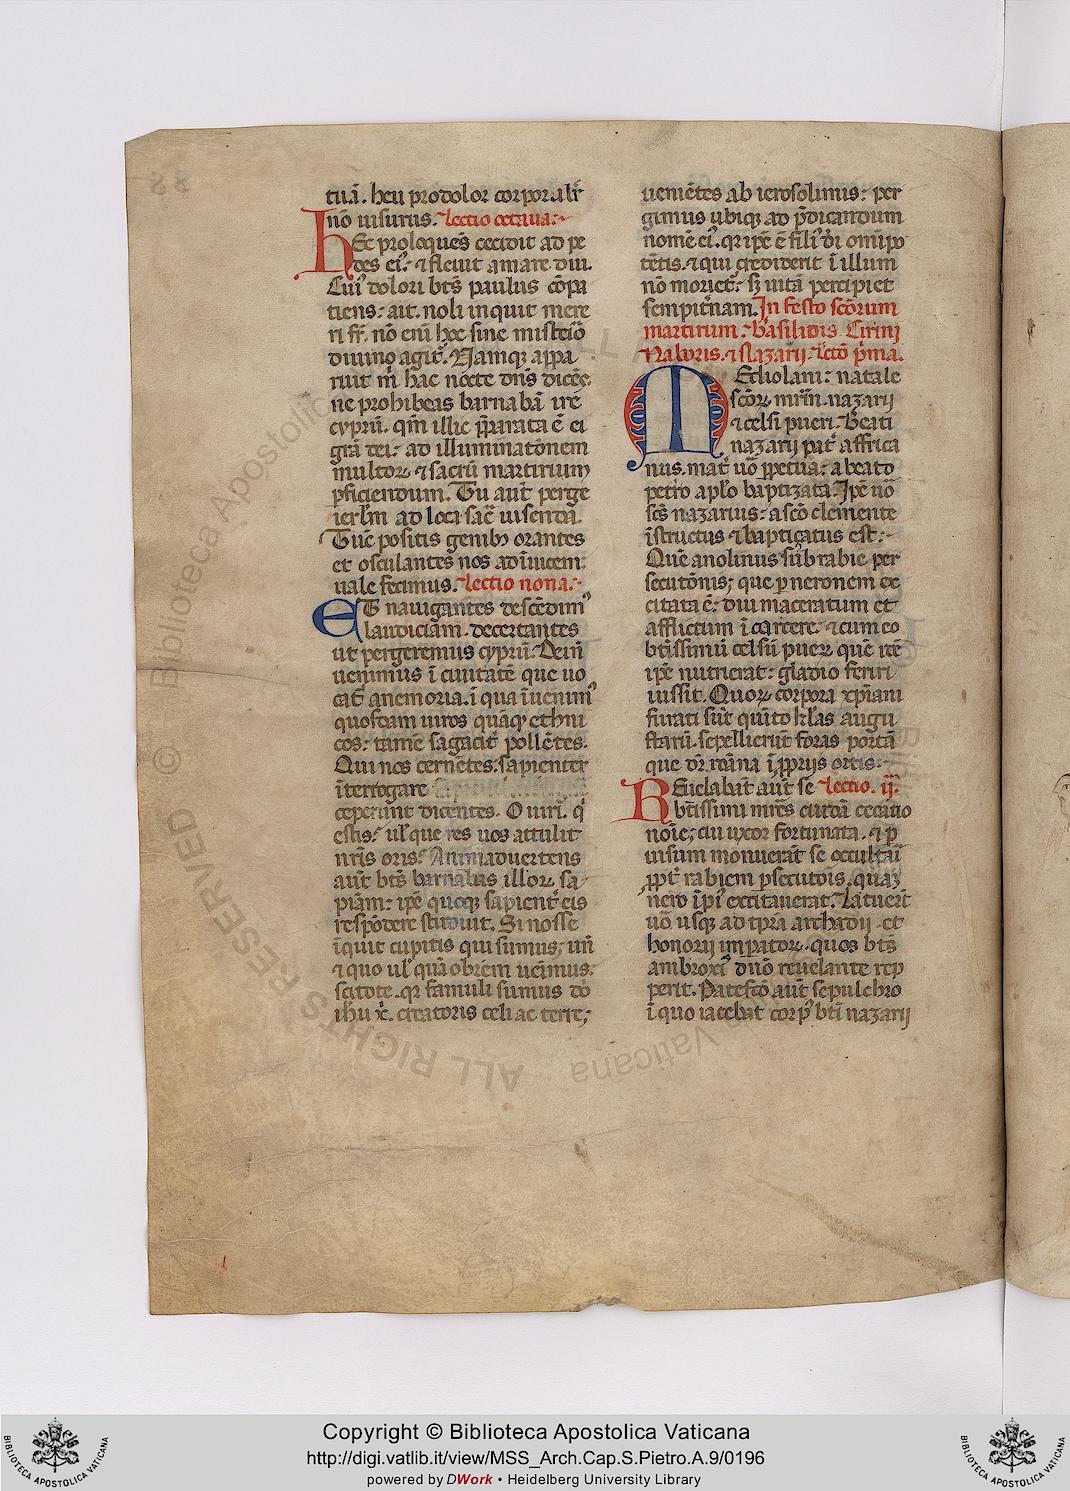 tuā. heu prodolor corporalit̄
nō uisurus. Lectio octaua:~
hEc proloquēs cecidit ad pe
des eiꝰ. ⁊ fleuit amare diu.
Cuiꝰ dolori bt̄s paulus cōpa
tiens: ait. noli inquit mere
ri fr̄. nō enī hec sine misteīo
diuino agit᷑. Namqꝫ appa
ruit m̄ hac nocte dn̄s dicēs.
ne prohibeas barnabā ire
cyprū. qm̄ illic p̄parata ē ei
grā dei: ad illuminatōnem
multoꝝ ⁊ sacrū martirium
ꝑficiendum. Tu aut̄ perge
ierlm̄ ad loca sac̄ uisenda.
Tūc positis genibꝫ orantes
et osculantes nos adīuicem:
uale fecimus. Lectio nona:~
ET nauigantes descēdimꝰ
laudiciam. decertantes
ut pergeremus cyprū. Dein̄
uenimus ī ciuitatē que uo
cat᷑ anemoria. ī qua īuenimꝰ
quosdam uiros quāqꝫ ethni
cos: tamē sagacit̄ pollētes.
Qui nos cernētes: sapienter
īterrogare
ceperunt dicentes. O uiri. q̄
estis: ul̓ que res uos attulit
nr̄is oris. Animaduertens
aut̄ bt̄s barnabas illoꝝ sa
piām: ipē quoqꝫ sapient̄ eis
respōdere studuit. Si nosse
īquit cupitis qui sumus; uñ
⁊ quo ul̓ quāobrem uēimus.
scitote. qꝛ famuli sumus dō
ihū x̄. creatoris celi ac terre;
ueniētes ab ierosolimis: per
gimus ubiqꝫ ad p̄dicandum
nomē eiꝰ. qꝛ ipē ē filiꝰ dī omīpo
tētis. ⁊ qui crediderit ī illum
nō moriet᷑. sꝫ uitā percipiet
sempit̄nam. In festo scōrum
martirum: basilidis Cirini
Naboris. ⁊ Nazarii. Lc̄tō p̄ma.
MEdiolani: natale
scōꝝ mr̄m. nazarii
⁊ celsi pueri. Beati
nazarii pat̄ affrica
nus. mat̄ uō ꝑpetua: a beato
petro aplo baptizata. Ipē uō
sc̄s nazarius: a scō clemente
īstructus ⁊ baptiçatus est:~
Quē anolinus sub rabie per
secutōnis; que ꝑ neronem ex
citata ē: diu maceratum et
afflictum ī carcere. ⁊ cum eo
bt̄issimū celsū pueꝝ quē
ipē nutrierat: gladio feriri
iussit. Quoꝝ corpora xp̄iani
furati sūt quīto kl̓as augu
starū. sepelierūt foras portā
que dr̄ romana ī ꝓpriis ortis:~
REuelabāt aut̄ se Lectio. ij.
bt̄issimi mr̄es cuidā cerātio
noīe; cui uxor fortunata. ⁊ ꝑ
uisum monuerāt se occultāī
ꝓpt̄ rabiem ꝑsecutōis. quā
nero īpiꝰ excitauerat. Latuerūt
uō usqꝫ ad tp̄ra archadii. et
honorii imꝑatoꝝ. quos bt̄s
ambroxiꝰ dn̄o reuelante rep
perit. Patefcō aut̄ sepulchro
ī quo iacebat corpꝰ bt̄i nazarii
Copyright © Biblioteca Apostolica Vaticana
http://digi.vatlib.it/view/MSS_Arch.Cap.S.Pietro.A.9/0196
powered by DWork • Heidelberg University Library
BIBLIOTECA APOSTOLICA VATICANA
BIBLIOTECA APOSTOLICA VATICANA